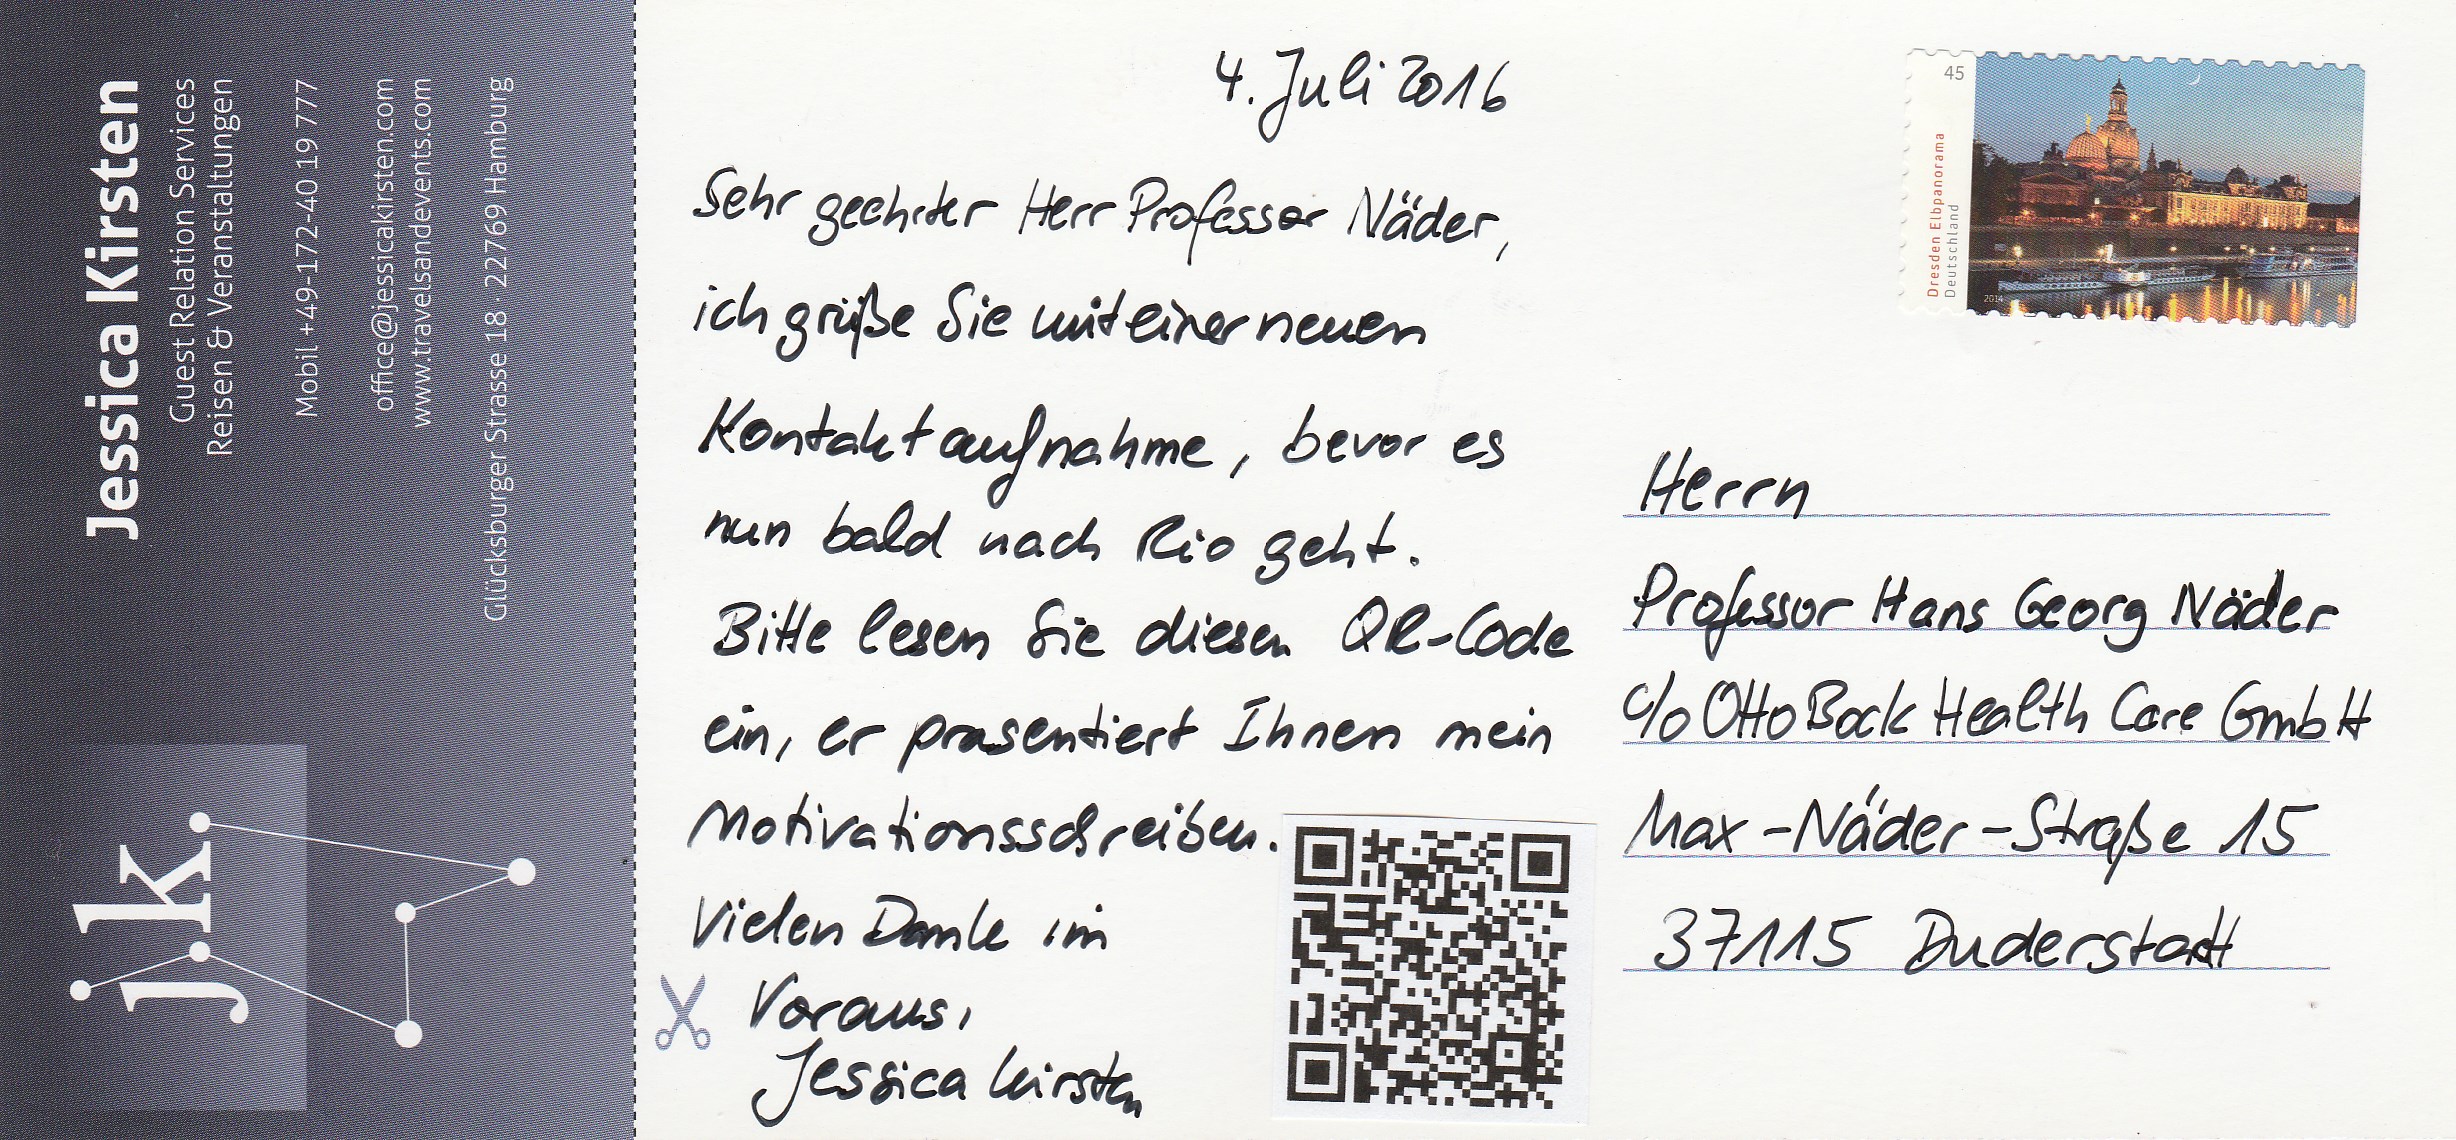 Jessica Kirsten
Guest Relation Services
Reisen & Veranstaltungen
Mobil +49-172-40 19 777
office@jessicakirsten.com
www.travelsandevents.com
Glücksburger Strasse 18 · 22769 Hamburg
j.k.
4. Juli 2016
Sehr geehrter Herr Professor Näder,
ich grüße Sie mit einer neuen
Kontaktaufnahme, bevor es
nun bald nach Rio geht.
Bitte lesen Sie diesen QR-Code
ein, er prasentiert Ihnen mein
Motivationsschreiben.
Vielen Dank im
Voraus,
Jessica Kirsten
45
Dresden Elbpanorama
Deutschland
2014
Herrn
Professor Hans Georg Näder
c/o Otto Bock Health Care GmbH
Max-Näder-Straße 15
37115 Duderstadt